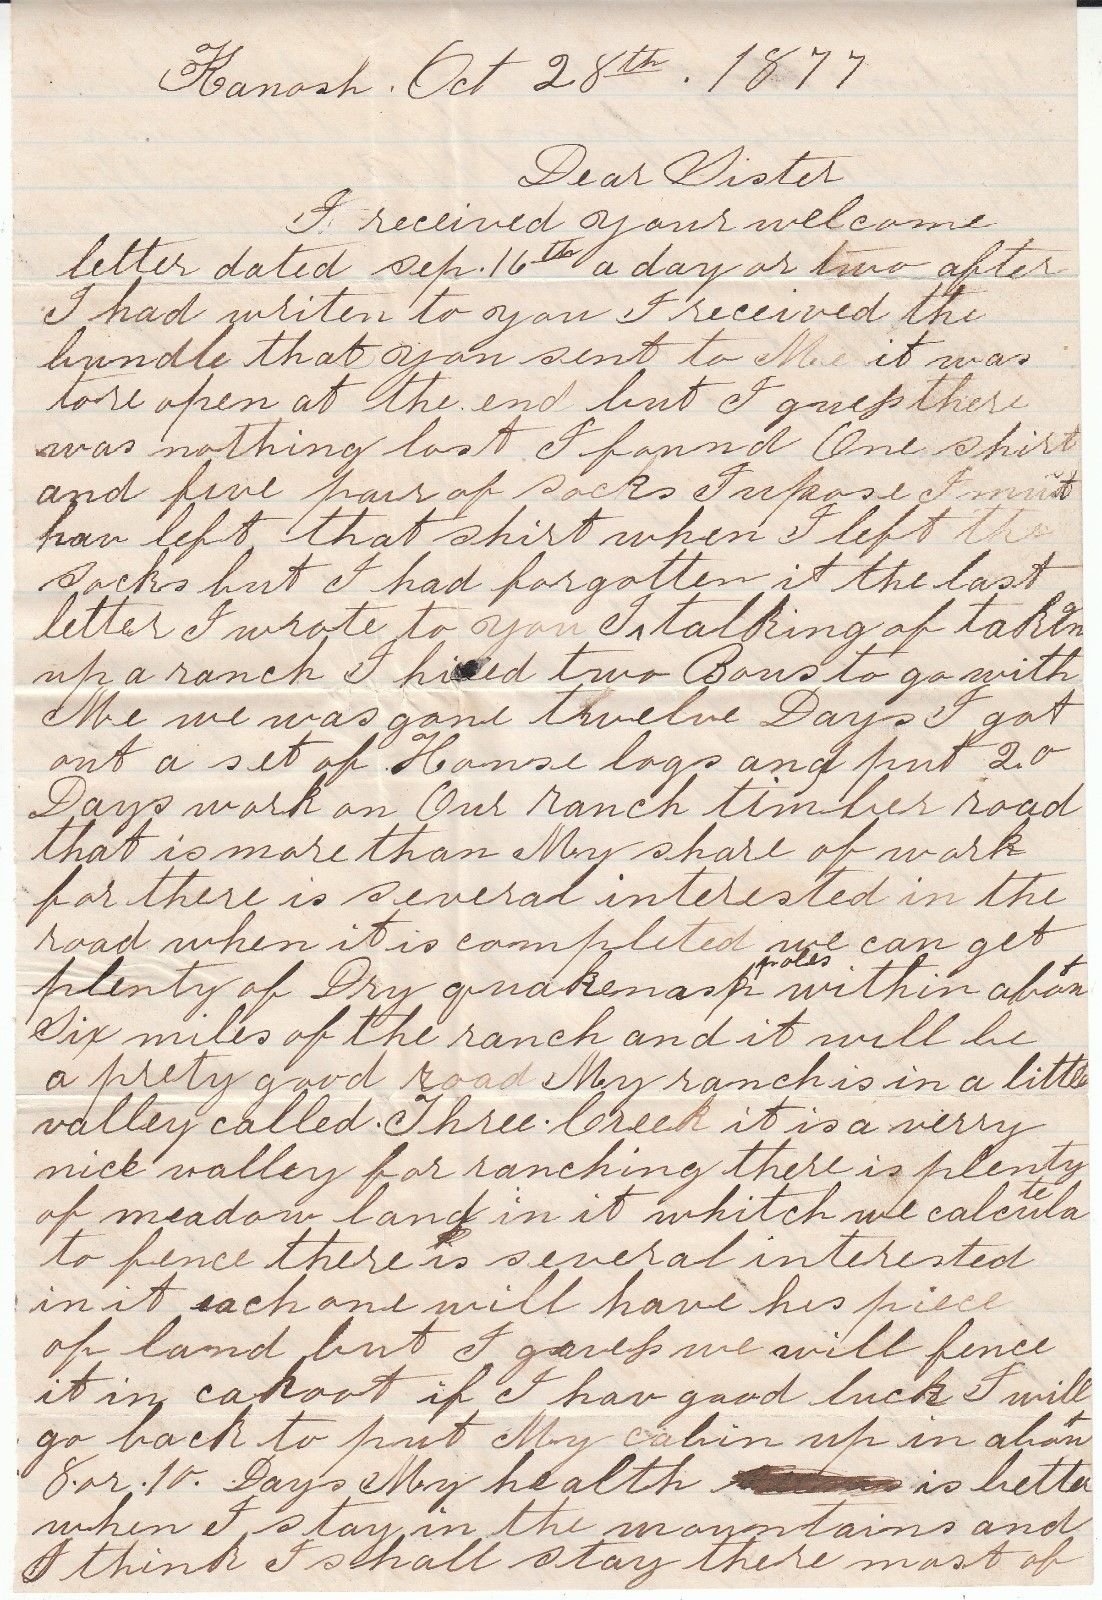 Kanosh. Oct 28th. 1877
Dear Sister
I received your welcome
letter dated sep. 16th a day or two after
I had writen to you I received the
bundle that you sent to Me it was
tore open at the end but I guess there
was nothing lost I found One shirt
and five pair of socks I upose I must
hav left that shirt when I left the
socks but I had forgotten it the last
letter I wrote to you I talking of taken
up a ranch I hired two Boys to go with
Me we was gone twelve Days I got
out a set of House logs and put 20
Days work on Our ranch timber road
that is more than My share of work
for there is several interested in the
road when it is completed we can get
plenty of Dry quakenasp poles within about
Six miles of the ranch and it will be
a prety good road My ranch is in a little
valley called. Three. Creek it is a verry
nice valley for ranching there is plenty
of meadow land in it whitch we calculate
to fence there is several interested
in it each one will have his piece
of land but I guess we will fence
it in cahoot if I hav good luck I will
go back to put My cabin up in about
8. or. 10. Days My health is better
when I stay in the mountains and
I think I shall stay there most of